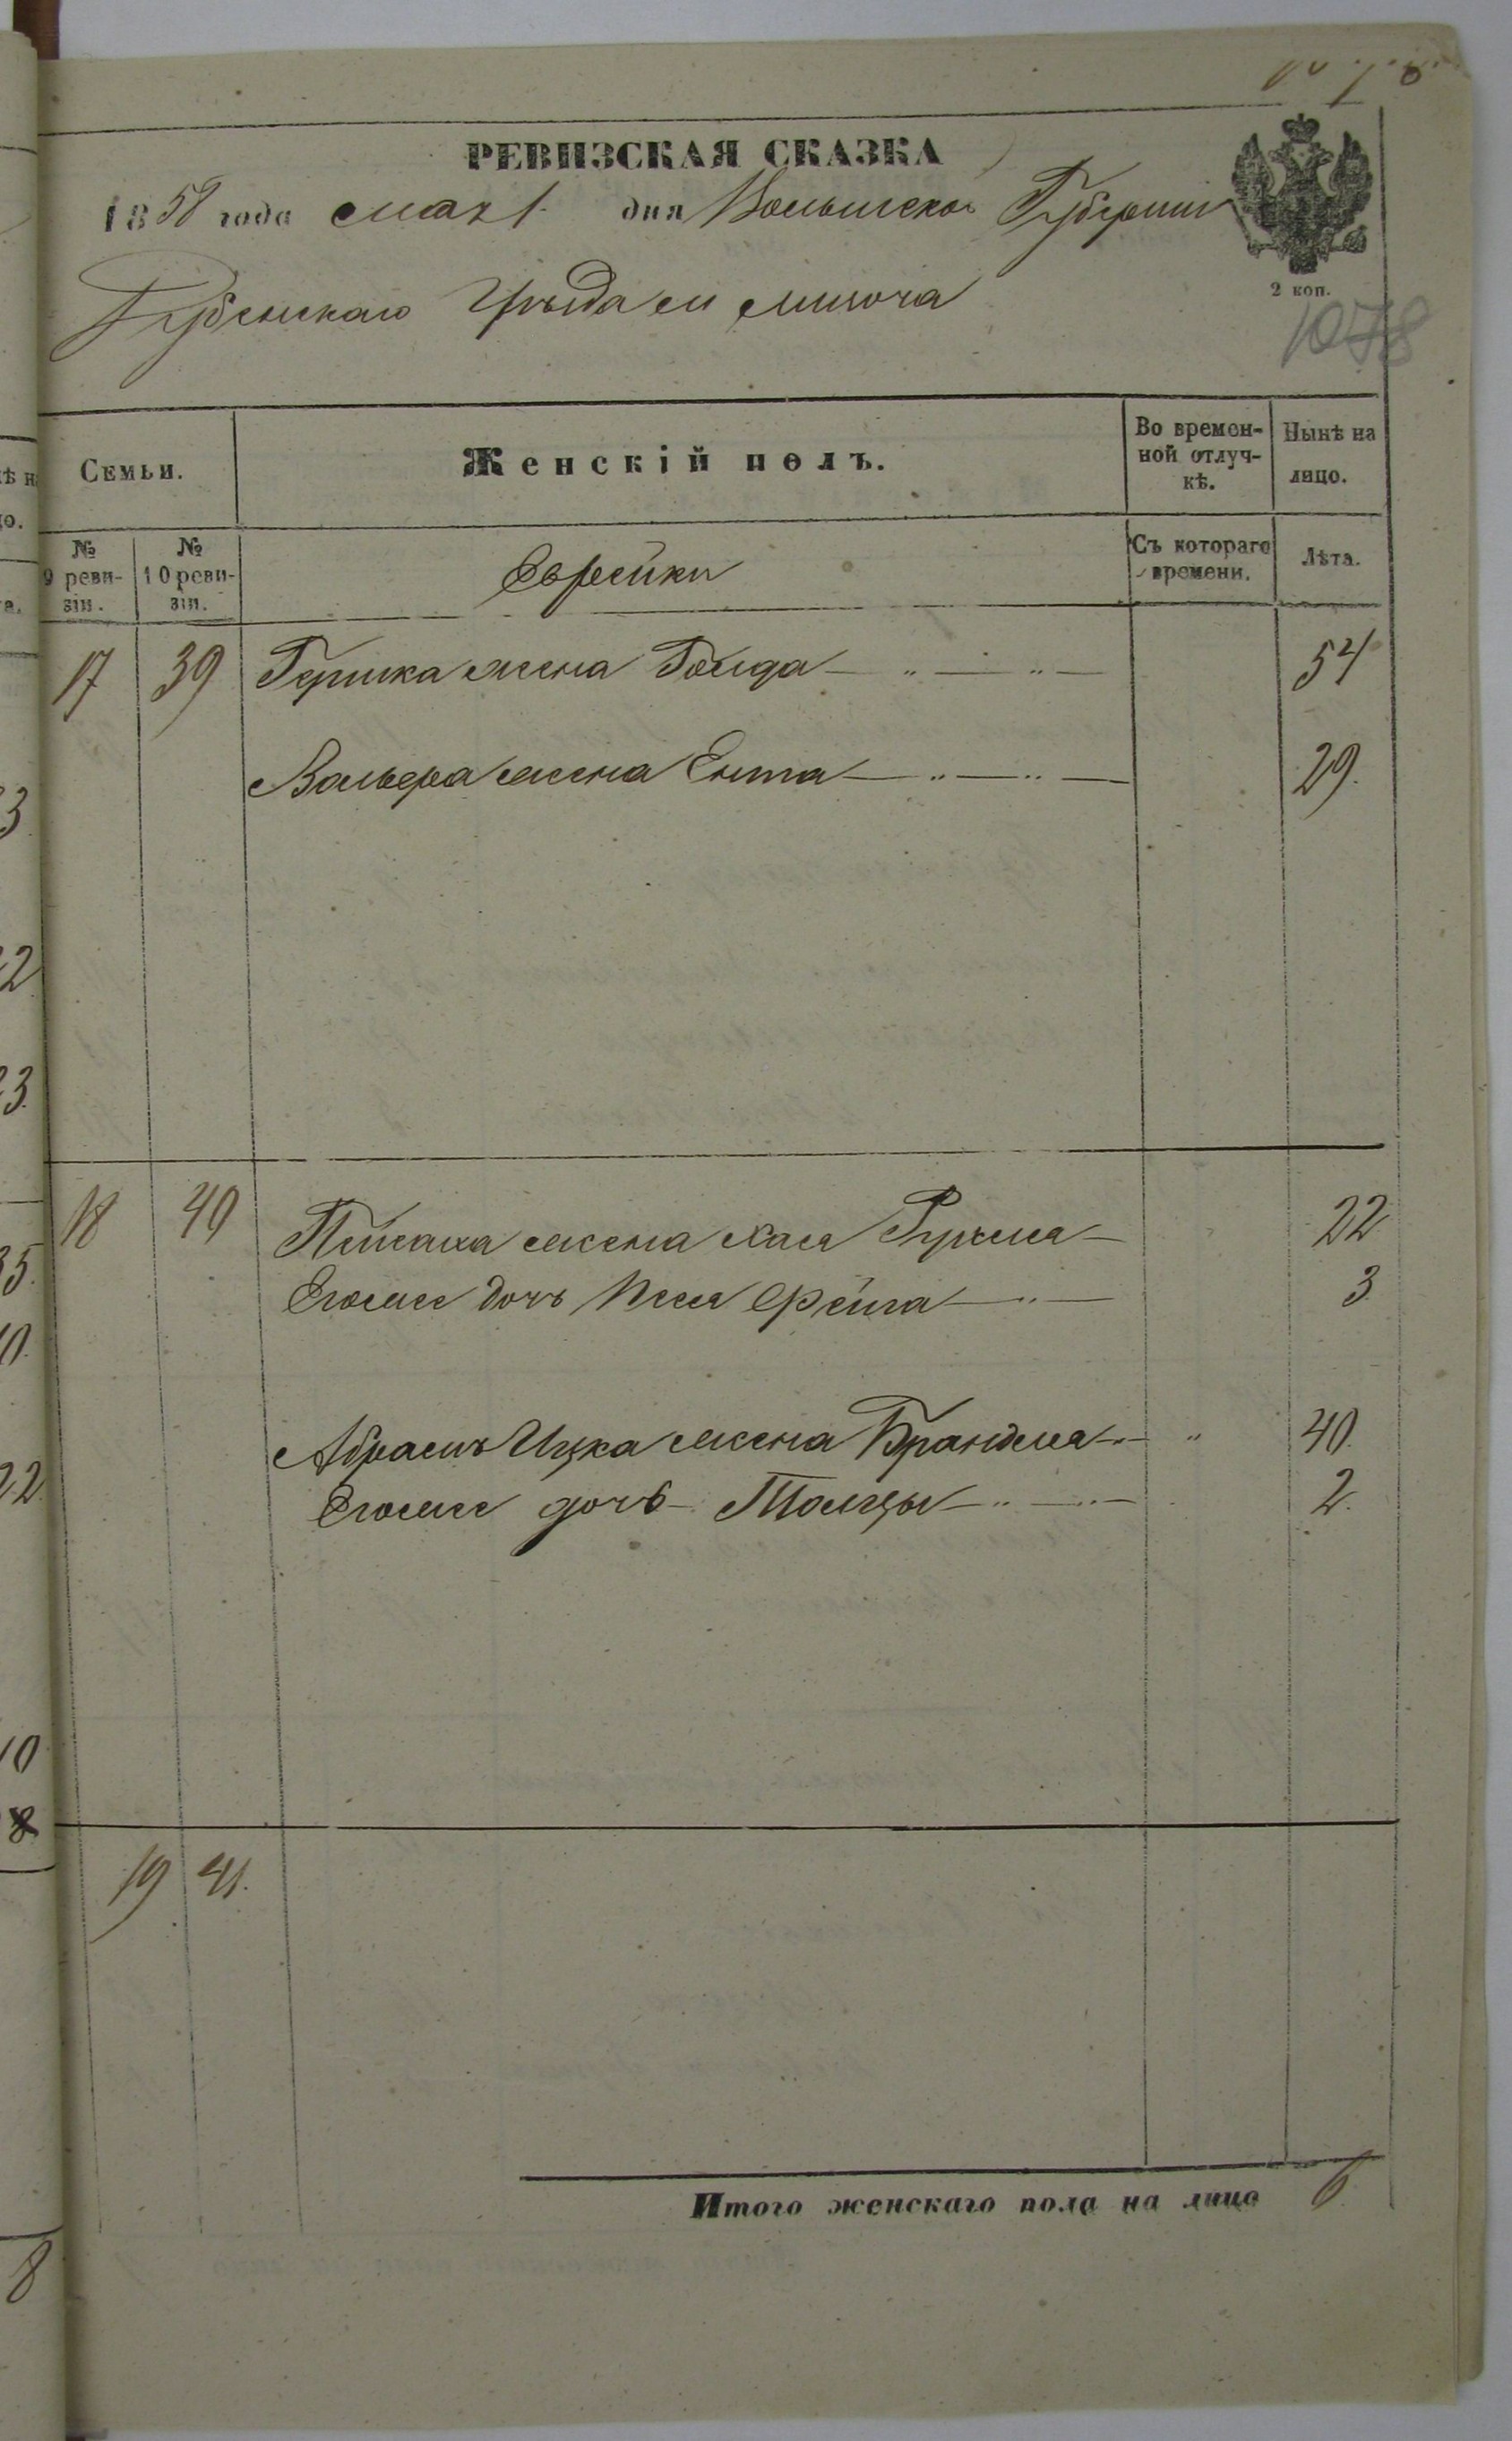 РЕВИЗСКАЯ СКАЗКА
1858 года мая 1 дня Волынской Губернии
2 коп.
Дубенскаго Уѣзда м Млинова
1078
Семьи.
Женскій полъ.
Во времен-
ной отлуч-
кѣ.
Нынѣ на
лицо.
№
9 реви-
зіи.
№
10 реви-
зіи.
Еврейки
Съ котораго
времени.
Лѣта.
17 39 Гершка жена Голда 54
Вольфа жена Ента 29.
18 40 Пейсаха жена Хая Рухля 22
Егоже дочь Песя Фейга 3
Абрамъ Ицка жена Брандля 40.
Егоже дочь 2.
19 41.
Итого женскаго пола на лицо 6